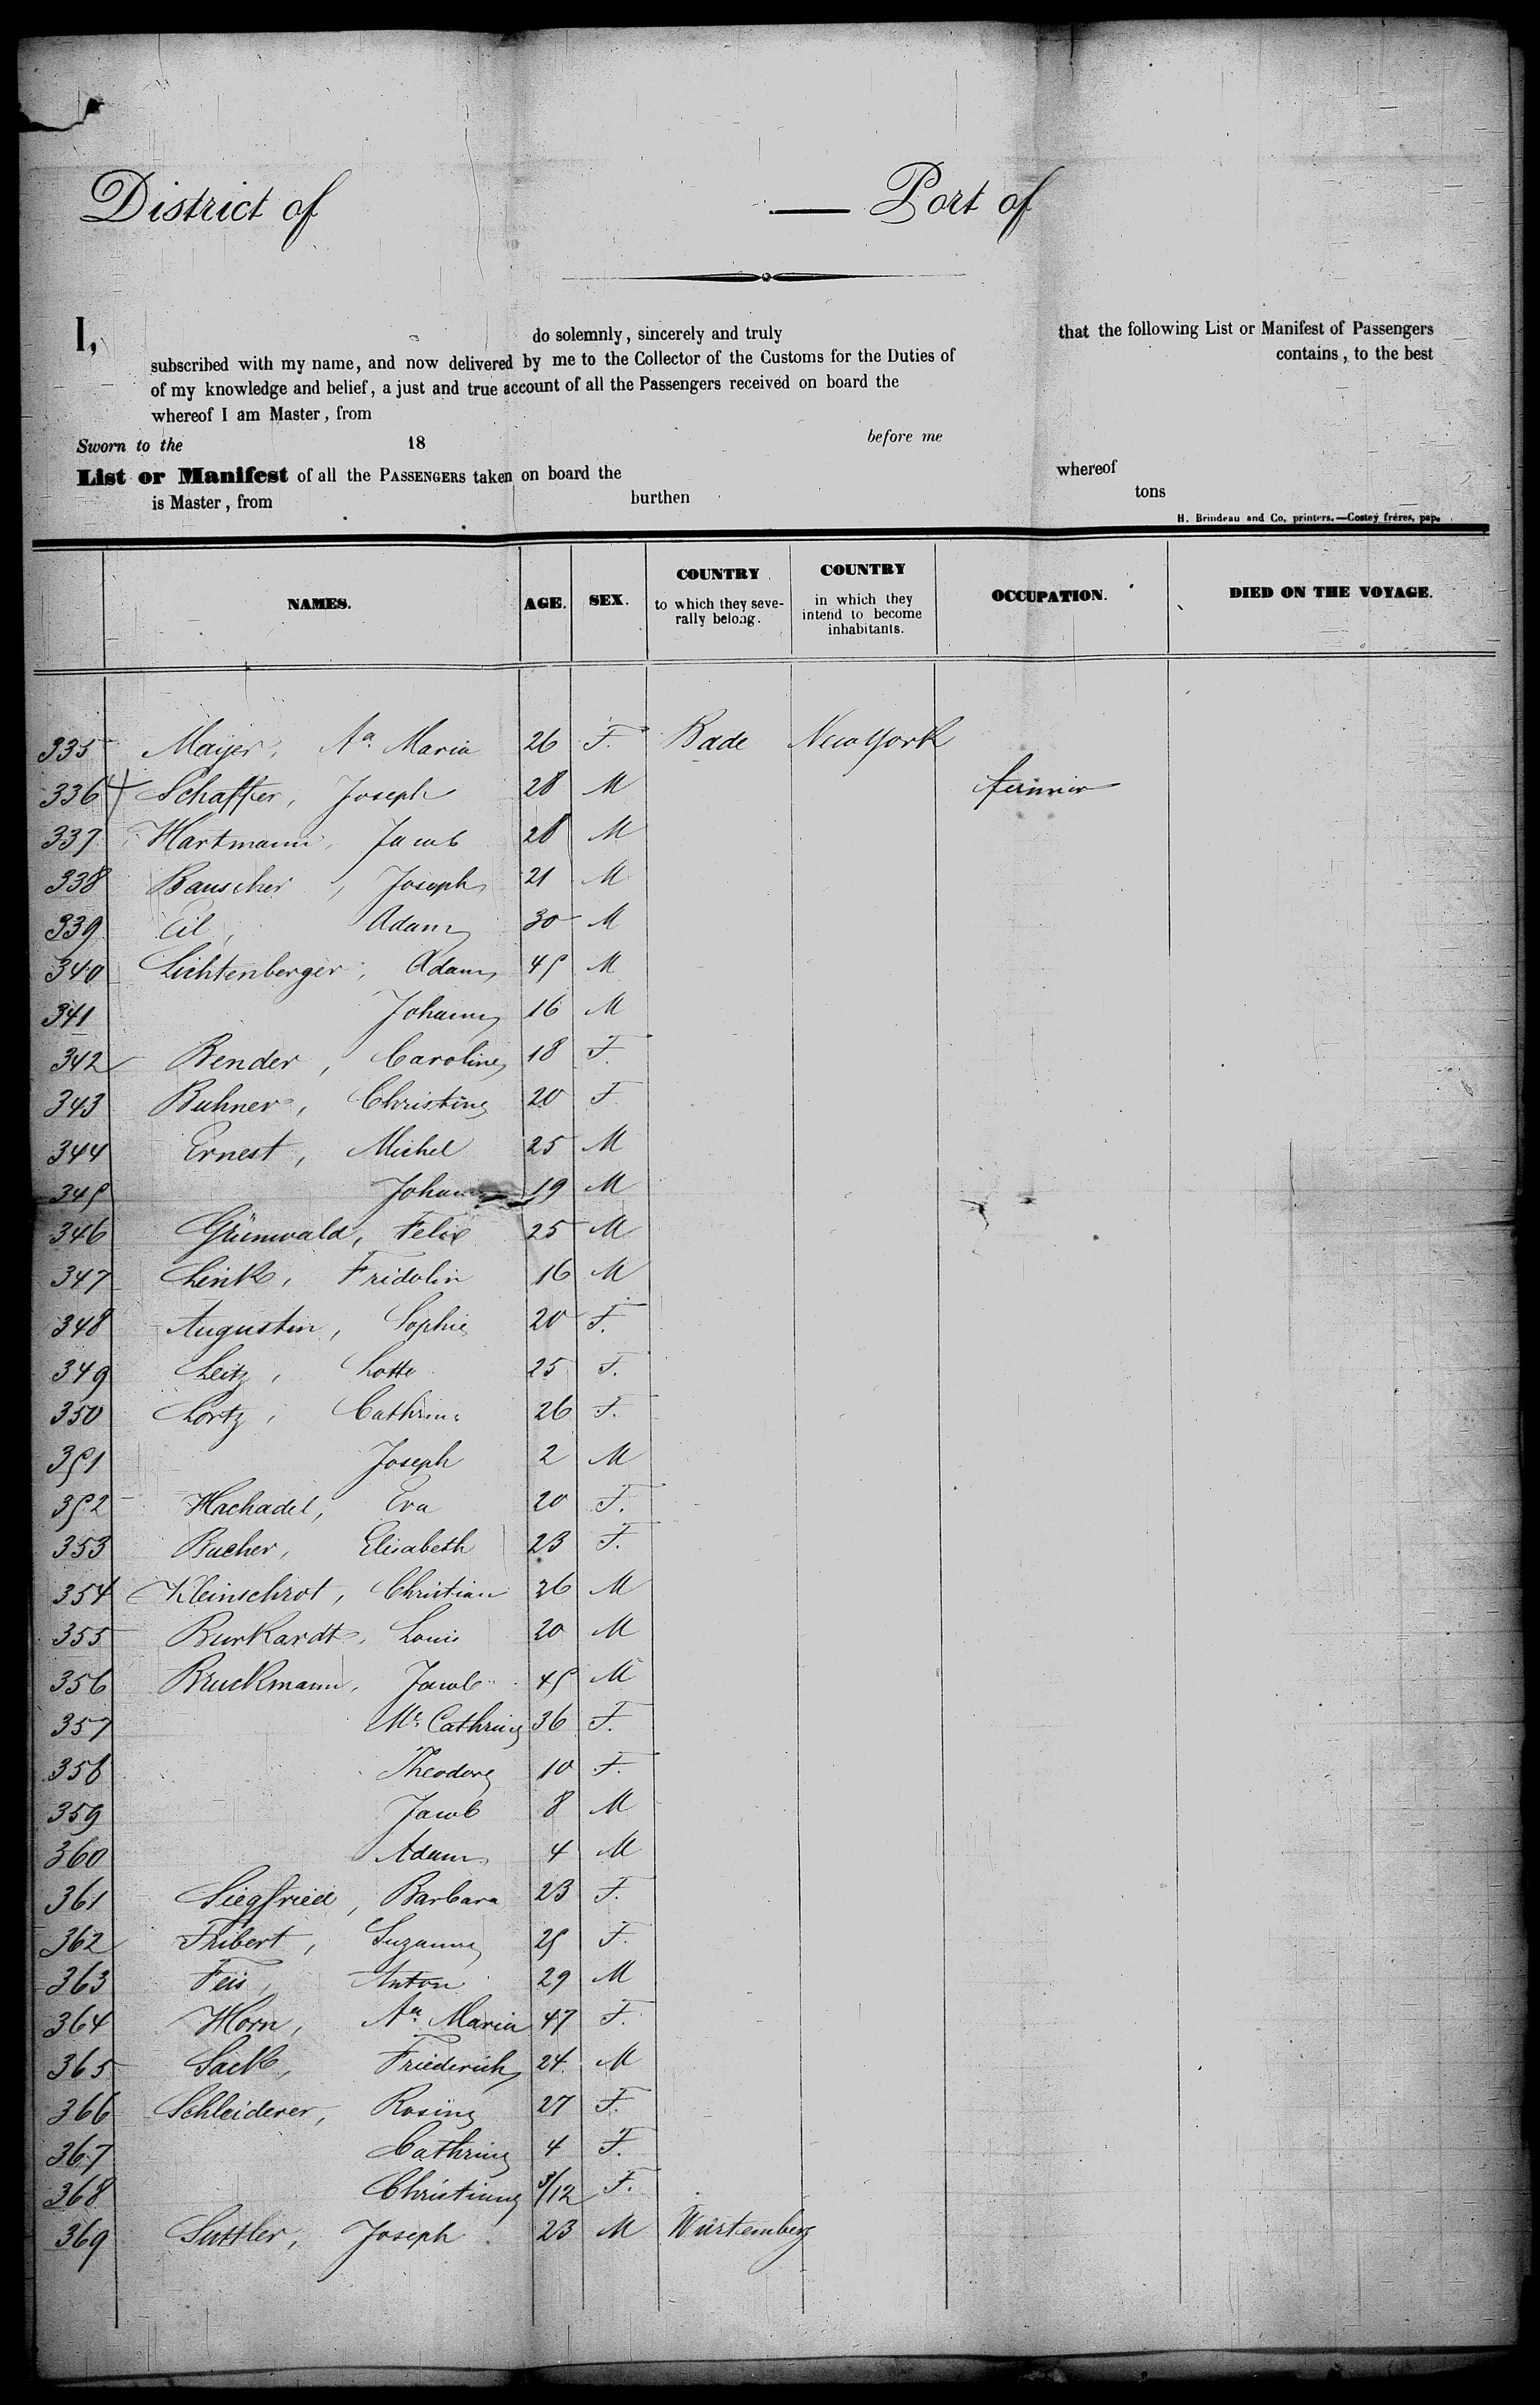 District of — Port of
I, do solemnly, sincerely and truly that the following List or Manifest of Passengers
subscribed with my name, and now delivered by me to the Collector of the Customs for the Duties of contains, to the best
of my knowledge and belief, a just and true account of all the Passengers received on board the
whereof I am Master, from
Sworn to the 18 before me
List or Manifest of all the PASSENGERS taken on board the whereof
is Master, from burthen tons
H. Brindeau and Co, printers.—Costey fréres, pap.
NAMES. AGE. SEX. COUNTRY to which they seve-rally belong. COUNTRY in which they intend to become inhabitants. OCCUPATION. DIED ON THE VOYAGE.
335 Mayer, Aa. Maria 26 F. Bade New York
336 Schaffer, Joseph 28 M
337 Hartmann, Jacob 28 M
338 Bauscher, Joseph 21 M
339 Eil, Adam 30 M
340 Lichtenberger, Adam 45 M
341 Johann 16 M
342 Bender, Caroline 18 F.
343 Buhner, Christine 20 F
344 Ernest, Michel 25 M
345 Johann 19 M
346 Grünwald, Felix 25 M
347 Link, Fridolin 16 M
348 Augustin, Sophie 20 F.
349 Leitz, Lotte 25 F.
350 Lortz, Cathrine 26 F.
351 Joseph 2 M
352 Hachadel, Eva 20 F.
353 Bucher, Elisabeth 23 F.
354 Kleinschrot, Christian 26 M
355 Burkardt, Louis 20 M
356 Bruckmann, Jacob 45 M
357 Cathrine 36 F.
358 Theodore 10 F.
359 Jacob 8 M
360 Adam 4 M
361 Siegfried, Barbara 23 F.
362 Fribert, Suzanne 25 F.
363 Feis, Anton 29 M
364 Horn, Aa. Maria 47 F.
365 Sack, Friederich 24 M
366 Schleiderer, Rosine 27 F.
367 Cathrine 4 F.
368 Christiane 3/12 F.
369 Suttler, Joseph 23 M Würtemberg